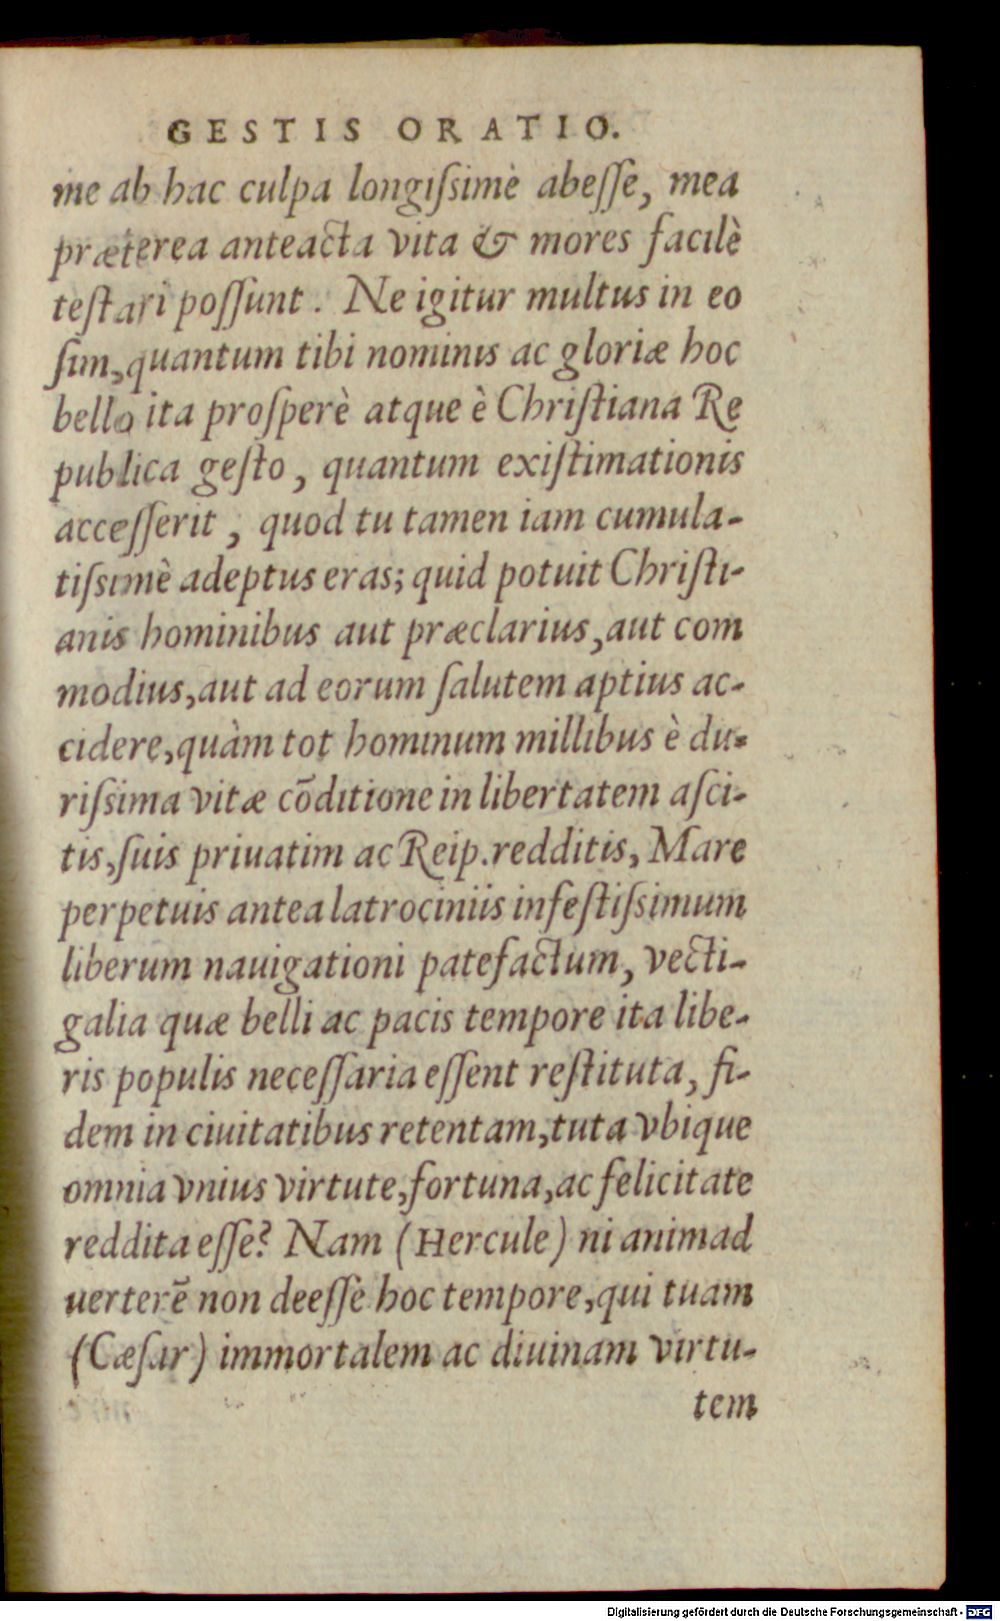 GESTIS ORATIO.
me ab hac culpa longiſsimè abeſſe, mea
præterea anteacta vita & mores facilè
teſtari poſſunt. Ne igitur multus in eo
ſim, quantum tibi nominis ac gloriæ hoc
bello ita proſperè atque è Chriſtiana Re
publica geſto, quantum exiſtimationis
acceſſerit, quod tu tamen iam cumula-
tiſsimè adeptus eras; quid potuit Chriſti-
anis hominibus aut præclarius, aut com
modius, aut ad eorum ſalutem aptius ac-
cidere, quàm tot hominum millibus è du-
riſsima vitæ cōditione in libertatem aſci-
tis, ſuis priuatim ac Reip. redditis, Mare
perpetuis antea latrociniis infeſtiſsimum
liberum nauigationi patefactum, vecti-
galia quæ belli ac pacis tempore ita libe-
ris populis neceſſaria eſſent reſtituta, fi-
dem in ciuitatibus retentam, tuta vbique
omnia vnius virtute, fortuna, ac felicitate
reddita eſſe? Nam (Hercule) ni animad
uerterē non deeſſe hoc tempore, qui tuam
(Cæſar) immortalem ac diuinam virtu-
tem
Digitalisierung gefördert durch die Deutsche Forschungsgemeinschaft - DFG